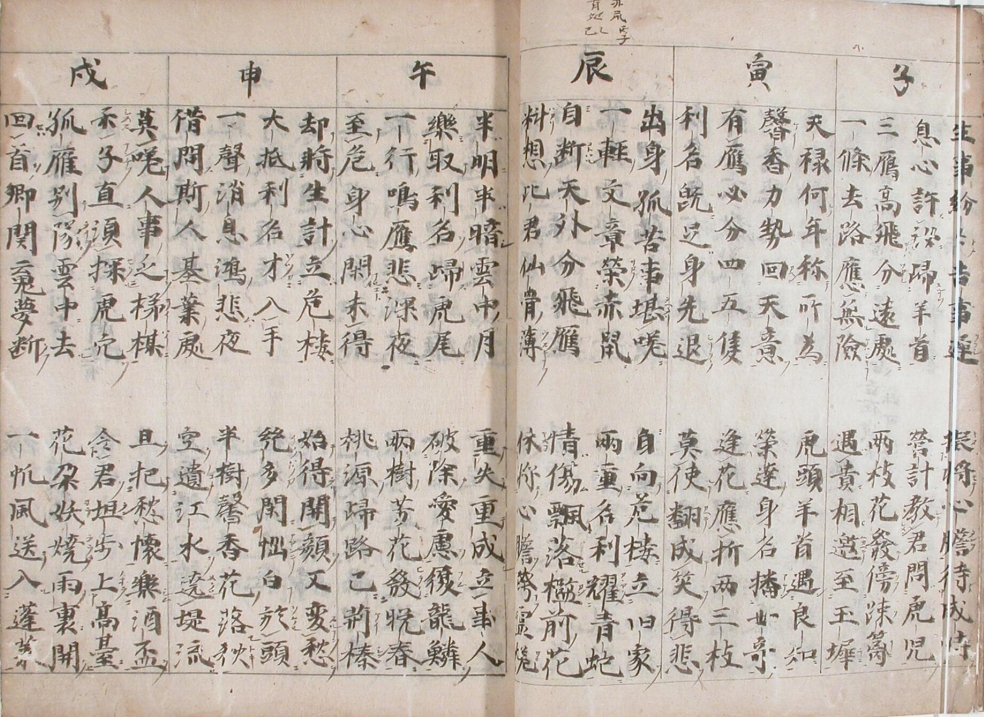 子
生事紛
息心許 歸羊首 營計教君問虎児
三鴈高飛分遠處 兩枝花發傍疎籬
一條去路應無險 遇貴相邀至玉墀
天禄何年称所為 虎頭羊首遇良知
寅
馨香力勢回天意 榮達身名播 哥
有鴈必分四五隻 逢花應折兩三枝
利名既足身先退 莫使翻成笑得悲
辰
出身孤苦事堪嗟 自向危楼立旧家
一輕文章榮赤鼠 兩重名利耀青蛇
自断天外分飛鴈 情傷飄落檻前花
料想比君仙骨薄 休將心膽 靈
午
半明半暗雲中月 重失重成立事人
樂取利名歸虎尾 破除憂慮復龍鱗
一行鳴鴈悲深夜 兩樹芳花發晩春
至危身心閑未得 桃源歸路已荊榛
申
却將生計立危楼 始得開顔又変愁
大抵利名才入手 絶多閑恤白於頭
一聲消息鴻悲夜 半樹馨香花落秋
借問斯人基葉處 空遺江水遶堤流
戌
莫嗟人事乏梯媒 且把愁懷樂酒盃
未子直須探虎穴 令君坦歩上高臺
孤雁别隊雲中去 花朶妖嬈雨裏開
回首郷関魂夢断 一帆風送入蓬莱